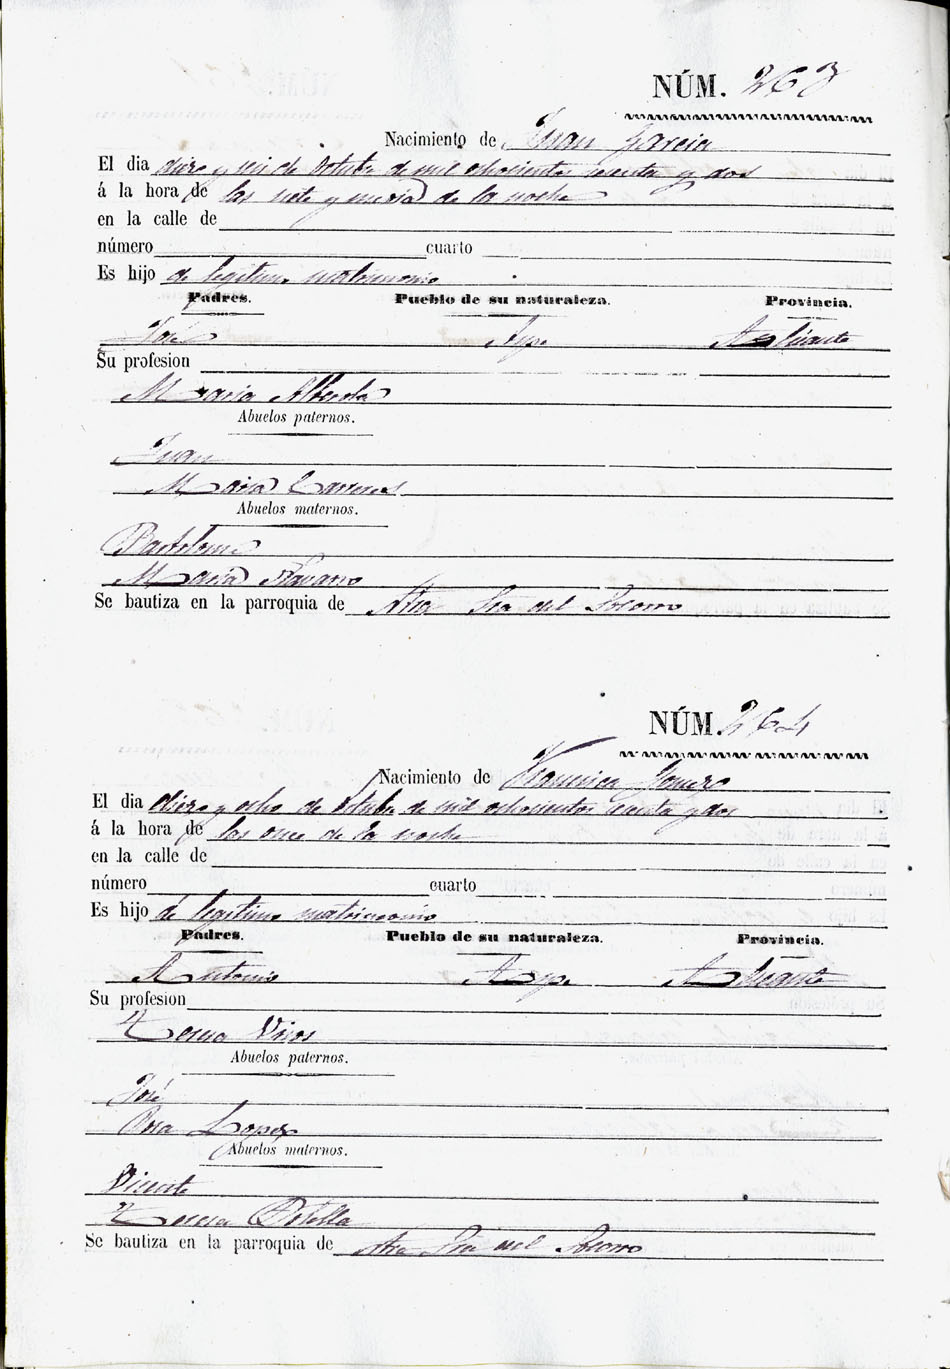 NÚM. 263
Nacimiento de Juan Garcia
El dia diez y seis de Octubre de mil ochocientos sesenta y dos
á la hora de las siete y media de la noche
en la calle de
número cuarto
Es hijo de legitimo matrimonio
Padres. Pueblo de su naturaleza. Provincia.
José Aspe Alicante
Su profesion
Maria Alberola
Abuelos paternos.
Juan
Maria Carreres
Abuelos maternos.
Bartolome
Maria Navarro
Se bautiza en la parroquia de Ntra Sra del Socorro
NÚM. 264
Nacimiento de Francisca Romero
El dia diez y ocho de Octubre de mil ochocientos sesenta y dos
á la hora de las once de la noche
en la calle de
número cuarto
Es hijo de legitimo matrimonio
Padres. Pueblo de su naturaleza. Provincia.
Antonio Aspe Alicante
Su profesion
Teresa
Abuelos paternos.
José
Rosa Lopez
Abuelos maternos.
Vicente
Teresa Botella
Se bautiza en la parroquia de Ntra Sra del Socorro